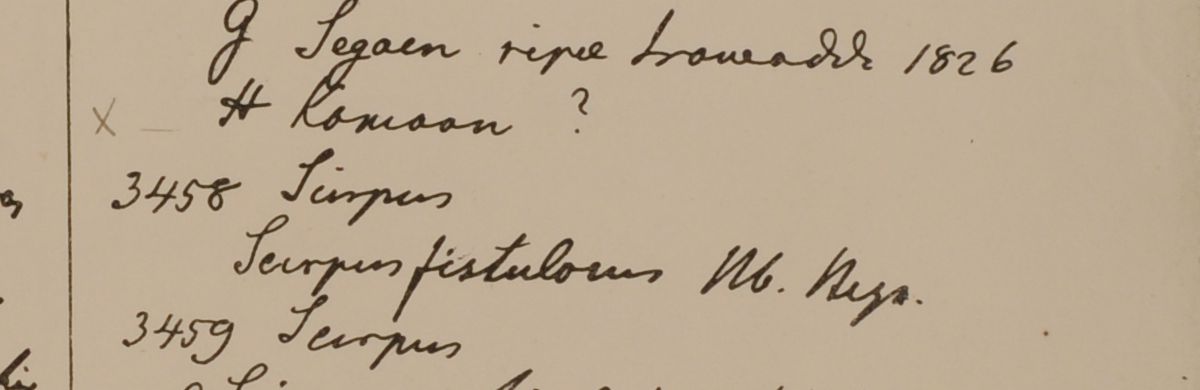 G Segaen ripæ Irawaddi 1826
X — H Kamaon ?
3458 Scirpus
Scirpus fistulosus Hb.
3459 Scirpus